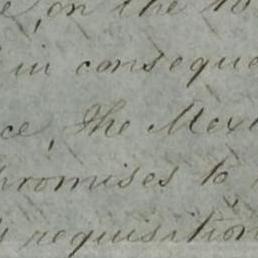 on the 10
in conseque
ce, the Mex
promises to
requisition